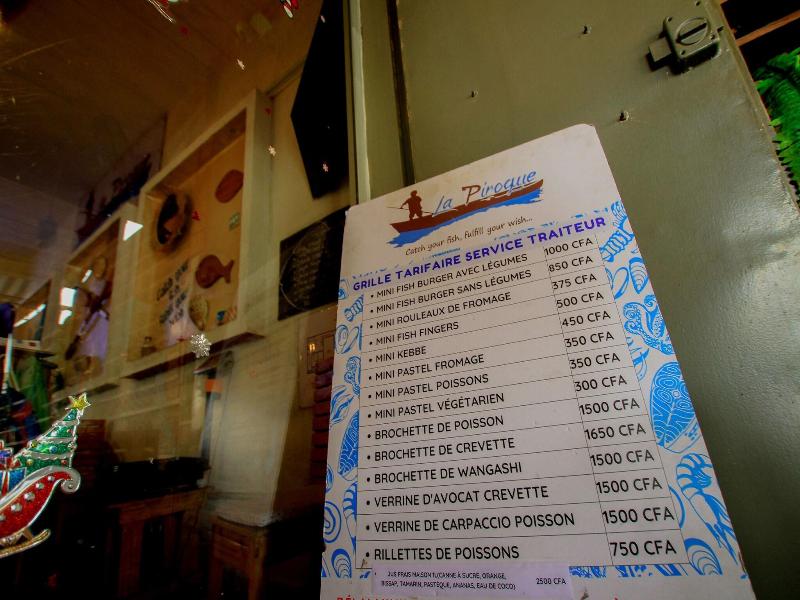 La Pirogue
Catch your fish, fulfill your wish...
GRILLE TARIFAIRE SERVICE TRAITEUR
• MINI FISH BURGER AVEC LÉGUMES 1000 CFA
• MINI FISH BURGER SANS LÉGUMES 850 CFA
• MINI ROULEAUX DE FROMAGE 375 CFA
• MINI FISH FINGERS 500 CFA
• MINI KEBBE 450 CFA
• MINI PASTEL FROMAGE 350 CFA
• MINI PASTEL POISSONS 350 CFA
• MINI PASTEL VÉGÉTARIEN 300 CFA
• BROCHETTE DE POISSON 1500 CFA
• BROCHETTE DE CREVETTE 1650 CFA
• BROCHETTE DE WANGASHI 1500 CFA
• VERRINE D'AVOCAT CREVETTE 1500 CFA
• VERRINE DE CARPACCIO POISSON 1500 CFA
• RILLETTES DE POISSONS 750 CFA
JUS FRAIS MAISON 1L(CANNE À SUCRE, ORANGE,
BISSAP, TAMARIN, PASTÈQUE, ANANAS, EAU DE COCO) 2500 CFA